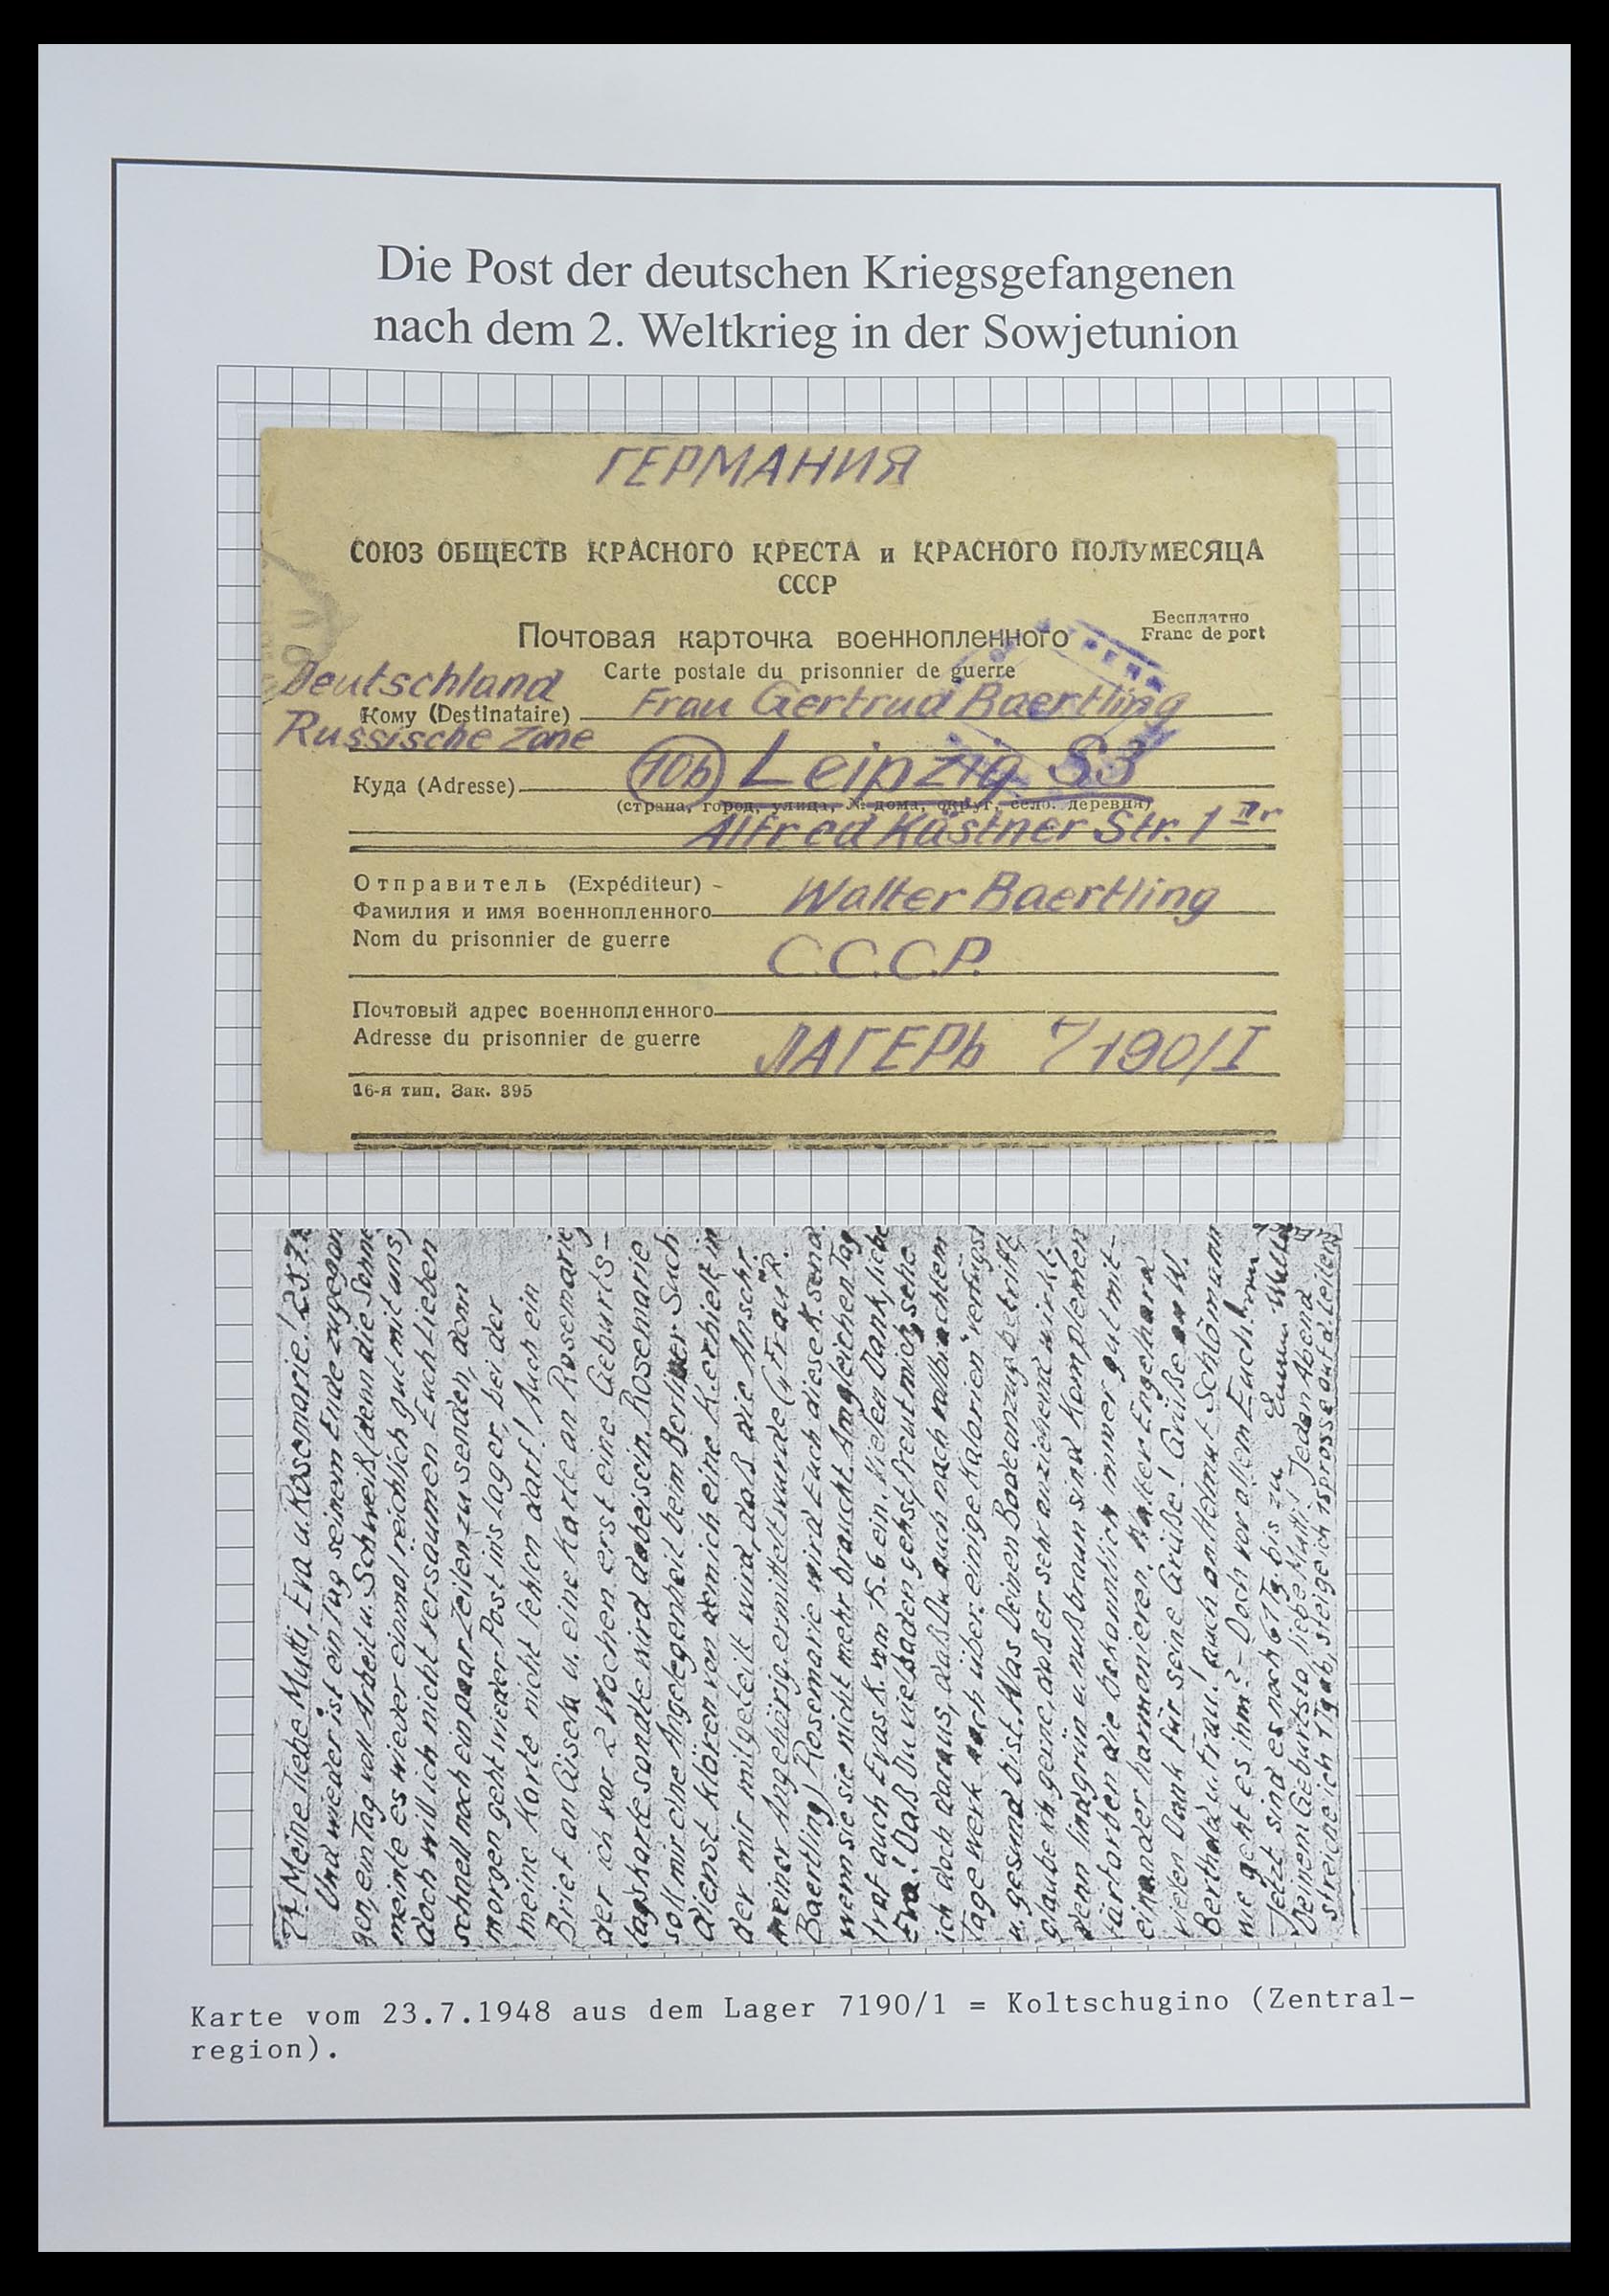 Die Post der deutschen Kriegsgefangenen
nach dem 2. Weltkrieg in der Sowjetunion
ГЕРМАНИЯ
СОЮЗ ОБЩЕСТВ КРАСНОГО КРЕСТА и КРАСНОГО ПОЛУМЕСЯЦА
СССР
Бесплатно
Franc de port
Почтовая карточка военнопленного
Carte postale du prisonnier de guerre
Deutschland
Кому (Destinataire) Frau Gertrud Baertling
Russische Zone
Куда (Adresse) (10b) Leipzig S3
(страна, город, улица, № дома, округ, село, деревня)
Alfred Kästner Str. 1 II r
Отправитель (Expéditeur) -
Фамилия и имя военнопленного Walter Baertling
Nom du prisonnier de guerre
С.С.С.Р.
Почтовый адрес военнопленного
Adresse du prisonnier de guerre ЛАГЕРЬ 7190/I
16-я тип. Зак. 395
Meine liebe Mutti, Eva u. Rosemarie! 23.7.
Und wieder ist ein Tag seinem Ende zugegan
gen, ein Tag voll Arbeit u. Schweiß (denn die Sonne
meinte es wieder einmal reichlich gut mit uns)
doch will ich nicht versäumen Euch Lieben
schnell noch ein paar Zeilen zu senden, denn
morgen geht wieder Post ins Lager, bei der
meine Karte nicht fehlen darf! Auch ein
Brief an Gisela u. eine Karte an Rosemarie
der ich vor 2 Wochen erst eine Geburts-
tagskarte sandte wird dabei sein. Rosemarie
soll mir eine Angelegenheit beim Berliner Such
dienst klären von dem ich eine K. erhielt in
der mir mitgeteilt wird, daß die Anschr.
meiner Angehörig. ermittelt wurde (Frau R.
Baertling) Rosemarie wird Euch diese K. send.
wenn sie sie nicht mehr braucht. Am gleichen Tag
traf auch Evas K. vom 15.6. ein. Vielen Dank, liebe
Eva! Daß Du viel baden gehst, freut mich, sehe
ich doch daraus, daß Du auch nach vollbrachtem
Tagewerk noch über "einige Kalorien" verfügst
u. gesund bist. Was Deinen Badeanzug betrifft
glaube ich gerne, daß er sehr anziehend wirkt,
denn lindgrün u. nußbraun sind Komplemen
tärfarben die bekanntlich immer gut mit-
einander harmonieren. Walter Engelhard
vielen Dank für seine Grüße! Grüße an W.
Berthold u. Frau! auch an Helmut Schlömann
wie geht es ihm? - Doch vor allem Euch!
Jetzt sind es noch 61 Tg. bis zu
Deinem Geburtstg, liebe Mutti! Jeden Abend
streiche ich 1 Tg ab, steige ich 1 Sprosse auf d. Leiter
Karte vom 23.7.1948 aus dem Lager 7190/1 = Koltschugino (Zentral-
region).